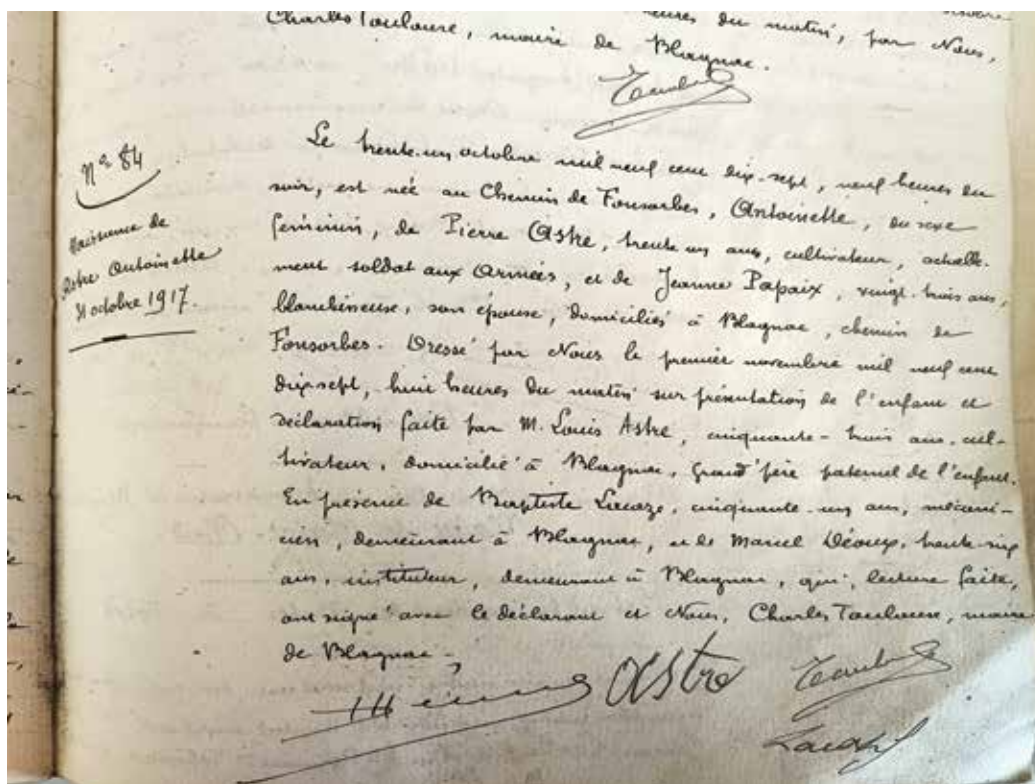 heures du matin, par Nous,
Charles Toulouse, maire de Blagnac.
Nº 84
Naissance de
Astre Antoinette
31 octobre 1917.
Le trente-un octobre mil neuf cent dix-sept, neuf heures du
soir, est née au Chemin de Fonsorbes, Antoinette, du sexe
féminin, de Pierre Astre, trente un ans, cultivateur, actuelle-
ment soldat aux Armées, et de Jeanne Papaix, vingt-trois ans,
blanchisseuse, son épouse, domiciliés à Blagnac, chemin de
Fonsorbes. Dressé par Nous le premier novembre mil neuf cent
dix-sept, huit heures du matin sur présentation de l'enfant et
déclaration faite par M. Louis Astre, cinquante-trois ans, cul-
tivateur, domicilié à Blagnac, grand'père paternel de l'enfant.
En présence de Baptiste Lacaze, cinquante-un ans, mécani-
cien, demeurant à Blagnac, et de Marcel Déoux, trente-six
ans, instituteur, demeurant à Blagnac, qui, lecture faite,
ont signé avec le déclarant et Nous, Charles Toulouse, maire
de Blagnac.
Astre
Lacaze